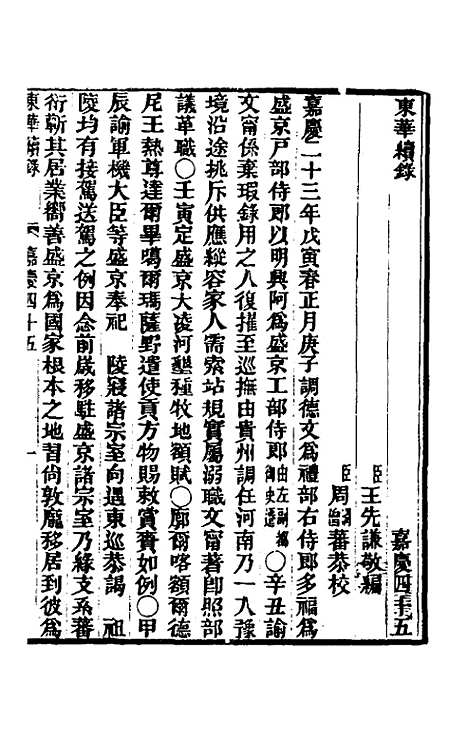 東華續錄
嘉慶四十五
臣王先謙敬編
臣周潤蕃恭校
嘉慶二十三年戊寅春正月庚子調德文爲禮部右侍郎多福爲
盛京戶部侍郎以明興阿爲盛京工部侍郎由左副都御史遷〇辛丑諭
文甯係棄瑕錄用之人復擢至巡撫由貴州調任河南乃一入豫
境沿途挑斥供應縱容家人需索站規實屬溺職文甯著卽照部
議革職〇壬寅定盛京大凌河墾種牧地額賦〇廓爾喀額爾德
尼王熱尊達爾畢噶爾瑪薩野遣使貢方物賜敕賞賚如例〇甲
辰諭軍機大臣等盛京奉祀　陵寢諸宗室向遇東巡恭謁　祖
陵均有接駕送駕之例因念前歲移駐盛京諸宗室乃緣支系蕃
衍蘄其居業嚮善盛京爲國家根本之地習尙敦龐移居到彼爲
東華續錄　嘉慶四十五　一